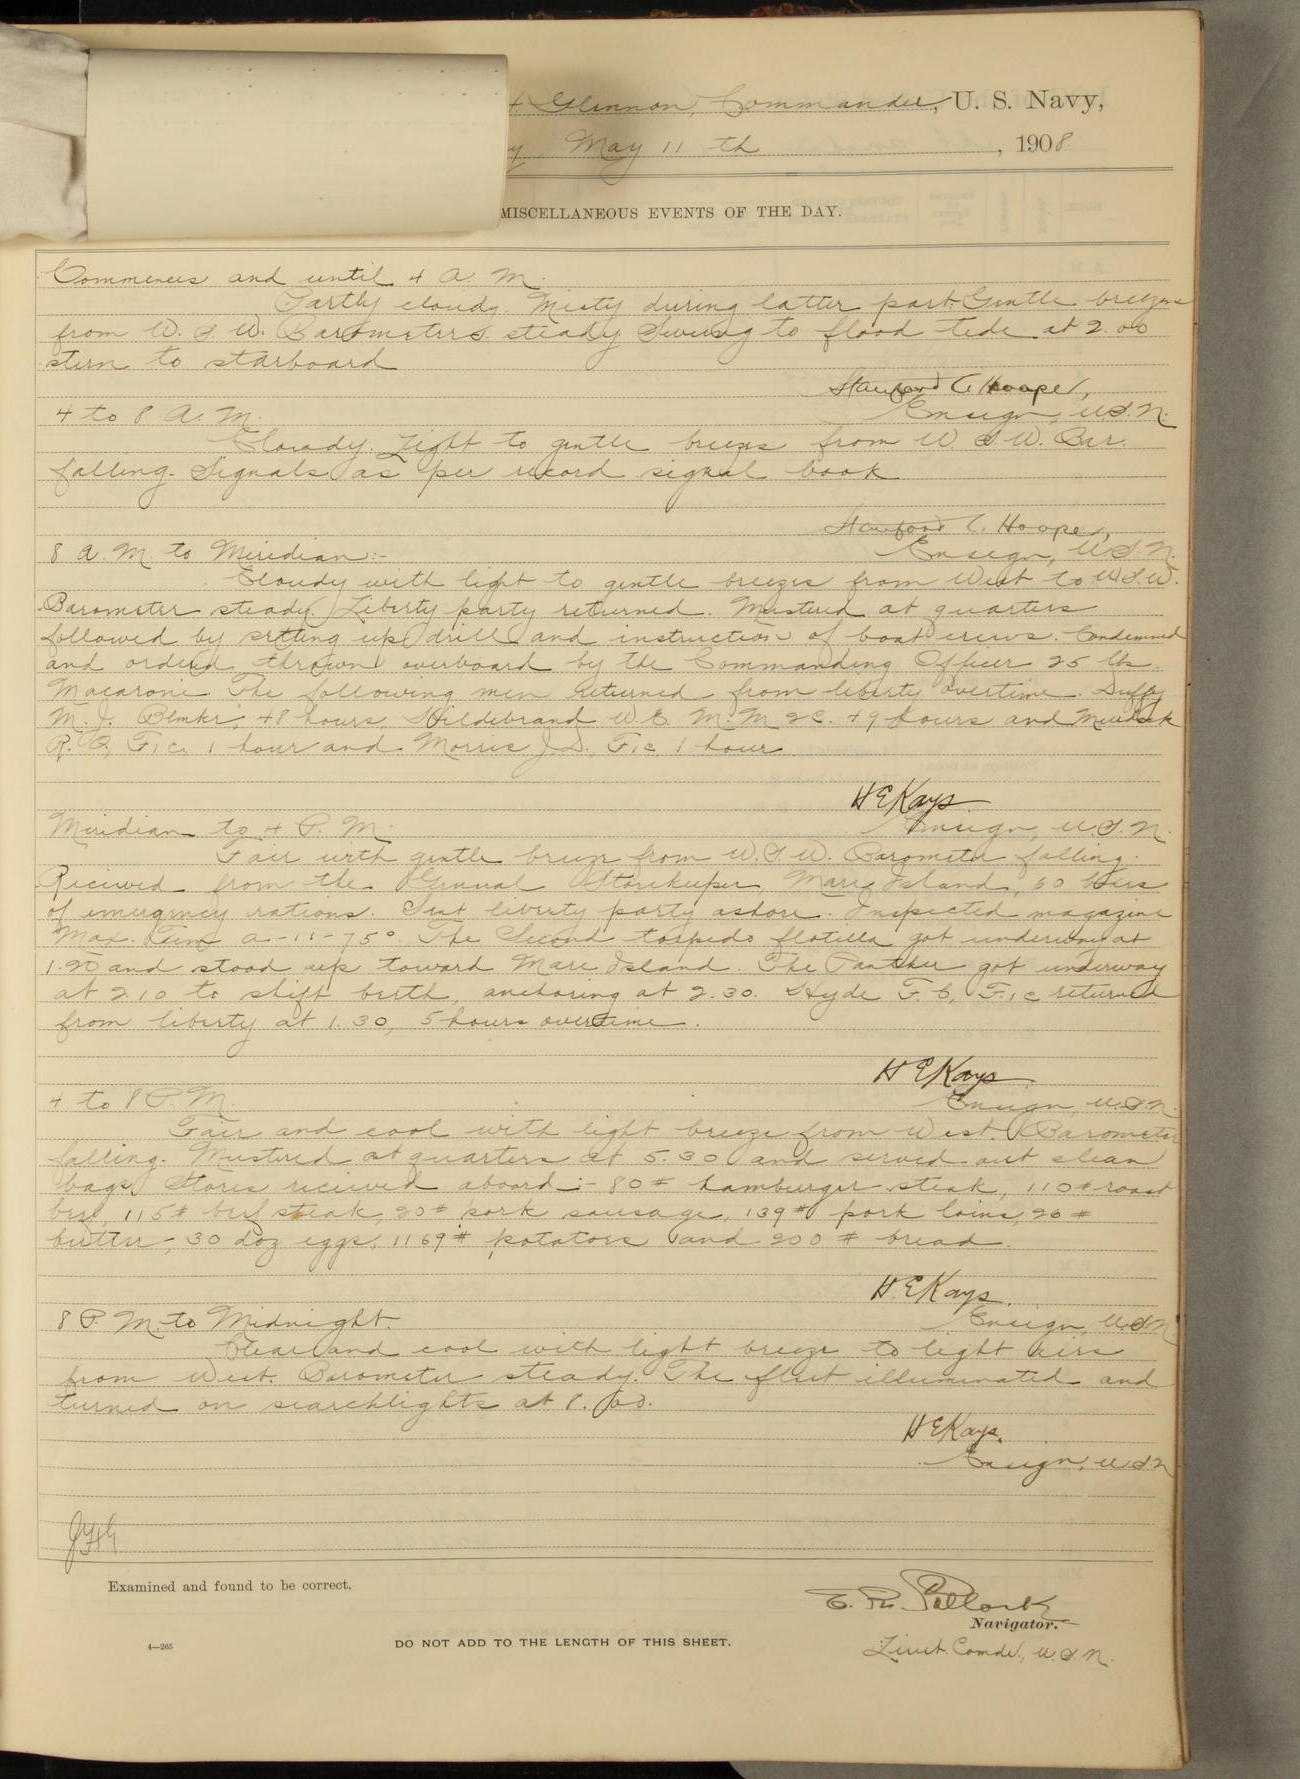 Glennon, Commander, U. S. Navy,
May 11 th, 1908
MISCELLANEOUS EVENTS OF THE DAY.
Commences and until 4 A. M.
Partly cloudy. Misty during latter part. Gentle breezes
from W. S. W. Barometers steady Swung to flood tide at 2.00
stern to starboard
Stanford C. Hooper,
4 to 8 A. M. Ensign, U.S.N.
Cloudy. Light to gentle breezes from W. S. W. Bar.
falling. Signals as per record signal book
Stanford C. Hooper,
8 A. M. to Meridian:- Ensign, U.S.N.
Cloudy with light to gentle breezes from West to W.S.W.
Barometer steady. Liberty party returned. Mustered at quarters
followed by setting up drill and instruction of boat crews. Condemned
and ordered thrown overboard by the Commanding Officer 25 lbs.
Macaroni. The following men returned from liberty overtime. Duffy
M. J. Blmkr, 48 hours, Hildebrand W. E. M. M 2c. 49 hours and Murdock
R. O, F1c, 1 hour and Morris J. D., F1c, 1 hour.
H E Kays
Meridian to 4 P. M. Ensign, U.S.N.
Fair with gentle breeze from W. S. W. Barometer falling.
Received from the General Storekeeper Mare Island, 60 tins
of emergency rations. Sent liberty party ashore. Inspected magazine
Max. Tem A-11-75° The Second torpedo flotilla got underway at
1.20 and stood up toward Mare Island. The Panther got underway
at 2.10 to shift berth, anchoring at 2.30. Hyde F. C, F1c returned
from liberty at 1.30, 5 hours overtime.
H E Kays
4 to 8 P. M. Ensign U.S.N.
Fair and cool with light breeze from West. Barometer
falling. Mustered at quarters at 5.30 and served out clean
bags. Stores received aboard:- 80# hamburger steak, 110# roast
beef, 115# beef steak, 20# pork sausage, 139# pork loins, 20#
butter, 30 doz eggs, 1169# potatoes and 200# bread.
H E Kays.
8 P. M. to Midnight. Ensign, U.S.N.
Clear and cool with light breeze to light airs
from West. Barometer steady. The fleet illuminated and
turned on searchlights at 8.00.
H E Kays.
Ensign, U.S.N
JHG
Examined and found to be correct.
E. R. Pollock
Navigator.
Lieut. Comdr, U.S.N.
4—265
DO NOT ADD TO THE LENGTH OF THIS SHEET.